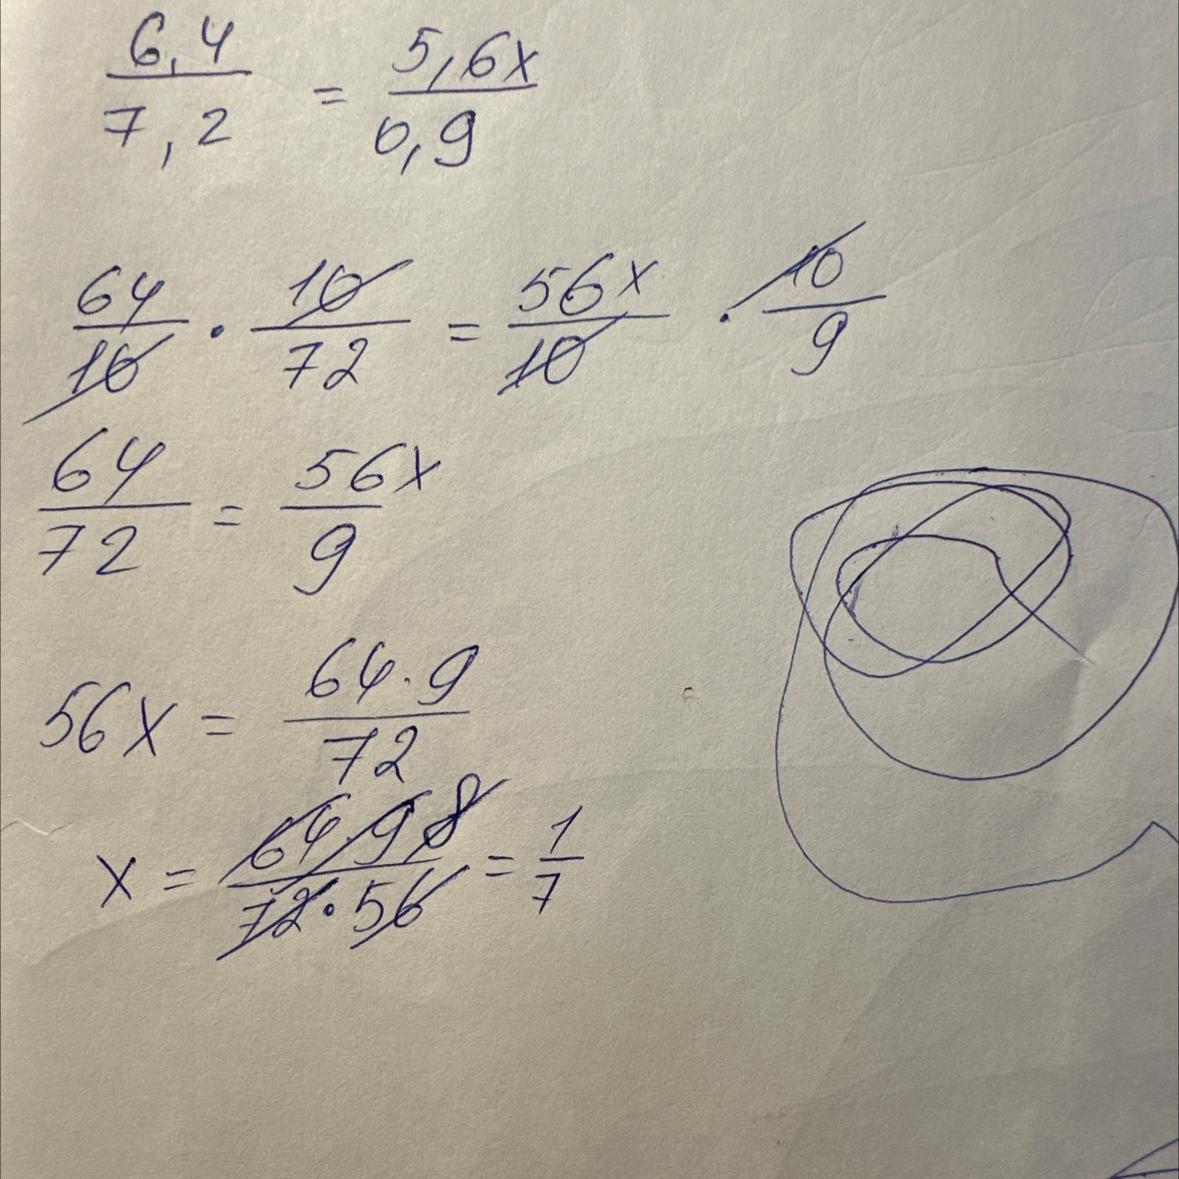 6,4/7,2 = 5,6x/0,9
64/10 · 10/72 = 56x/10 · 10/9
64/72 = 56x/9
56x = 64·9/72
x = 64·9 8/72·56 = 1/7